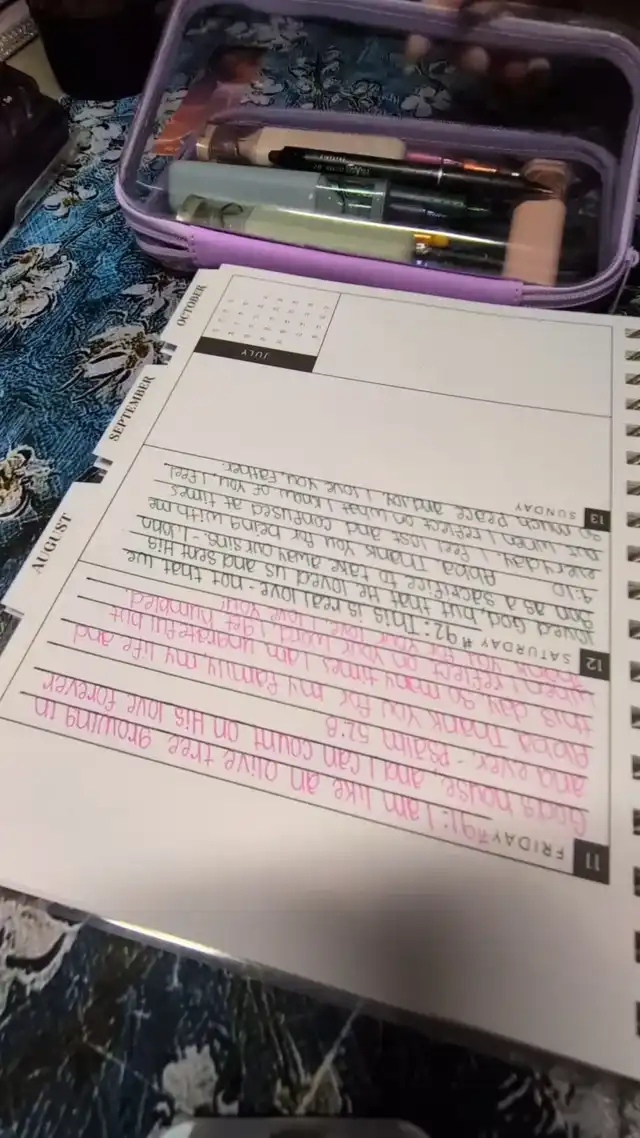 11 FRIDAY #91: I am like an olive tree growing in
God's house, and I can count on His love forever
and ever. - Psalm 52:8
Abba Thank you for my family my life and
this day. So many times I am ungrateful but
when I reflect on your word I get humbled.
Thank you for your love. I love you!
12 SATURDAY #92: This is real love - not that we
loved God, but that He loved us and sent His
Son as a sacrifice to take away our sins. - 1 John
4:10 Abba Thank you for being with me
everyday. I feel lost and confused at times
but when I reflect on what I know of you I feel
so much peace and joy. I love you, Father.
13 SUNDAY
JULY
AUGUST
SEPTEMBER
OCTOBER